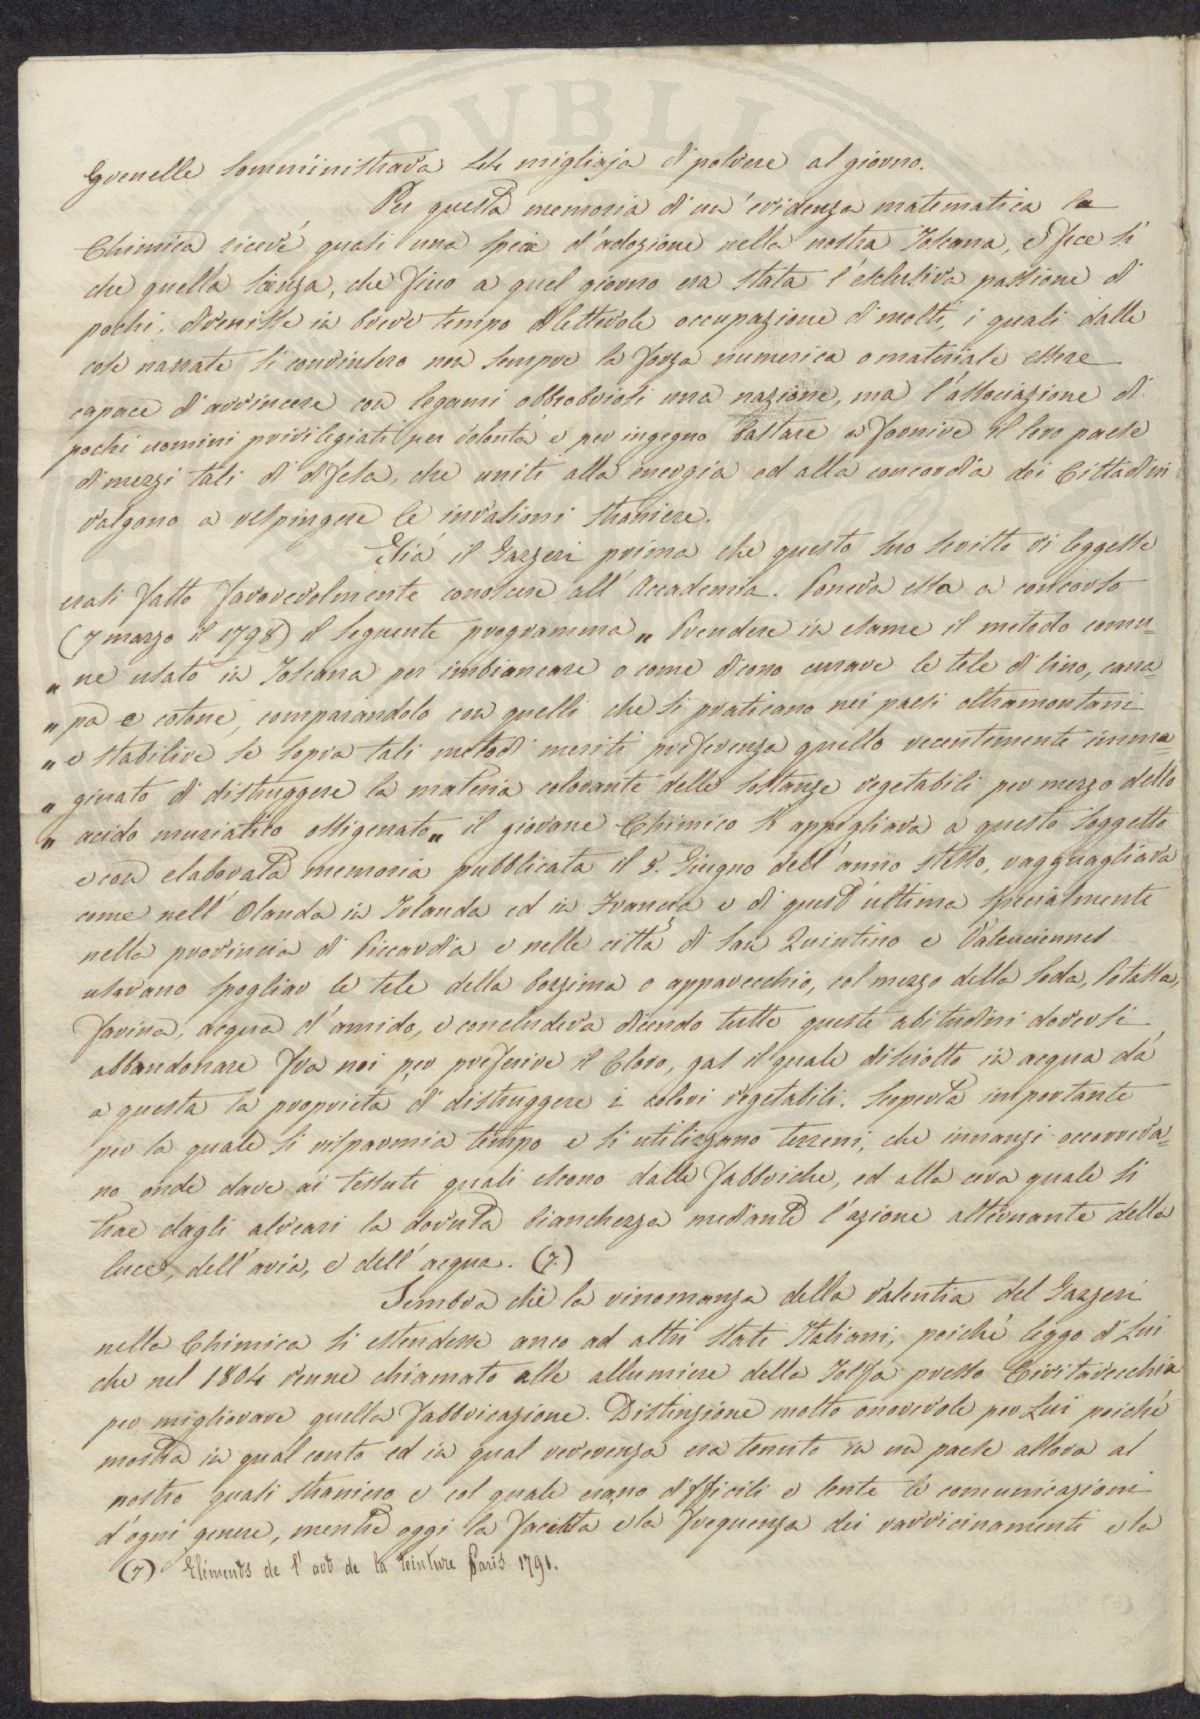 Grenelle somministrava 44 migliaja di polvere al giorno.
Per questa memoria di un' evidenza matematica la
Chimica ricevé quasi una specie d'adozione nella nostra Toscana, e fece sì
che quella scienza, che fino a quel giorno era stata l'esclusiva passione di
pochi, divenisse in breve tempo dilettevole occupazione di molti, i quali dalle
cose narrate si convinsero non sempre la forza numerica o materiale essere
capace di avvincere con legami obbrobriosi una nazione, ma l'associazione di
pochi uomini privilegiati per volontà e per ingegno bastare a fornire il loro paese
di mezzi tali di difesa, che uniti alla energia ed alla concordia dei Cittadini
valgano a respingere le invasioni straniere.
Già il Gazzeri prima che questo suo scritto vi leggesse
erasi fatto favorevolmente conoscere all' Accademia. Poneva essa a concorso
(7 marzo il 1798) il seguente programma „ Prendere in esame il metodo comu=
„ ne usato in Toscana per imbiancare o come dicono curare le tele di lino, cana=
„ pa e cotone, comparandolo con quelli che si praticano nei paesi oltramontani
„ e stabilire se sopra tali metodi meriti preferenza quello recentemente imma=
„ ginato di distruggere la materia colorante delle sostanze vegetabili per mezzo dello
„ acido muriatico ossigenato „ il giovane Chimico si appigliava a questo soggetto
e con elaborata memoria pubblicata il 5. Giugno dell' anno stesso, ragguagliava
come nell' Olanda in Irlanda ed in Francia e di quest' ultima specialmente
nella provincia di Piccardia e nelle città di San Quintino e Valenciennes
usavano spogliar le tele della bozzima o apparecchio, col mezzo della Soda, Potassa,
farina, acqua d'amido, e concludeva dicendo tutte queste abitudini doversi
abbandonare fra noi per preferire il Cloro, gas il quale disciolto in acqua dà
a questa la proprietà di distruggere i colori vegetabili. Scoperta importante
per la quale si risparmia tempo e si utilizzano terreni, che innanzi occorreva=
no onde dare ai tessuti quali escono dalle fabbriche, ed alla cera quale si
trae dagli alveari la dovuta bianchezza mediante l'azione alternante della
luce, dell' aria, e dell' acqua. (7.)
Sembra che la rinomanza della valentia del Gazzeri
nella Chimica si estendesse anco ad altri stati Italiani, poiché leggo di Lui
che nel 1804 venne chiamato alle allumiere della Tolfa presso Civitavecchia
per migliorare quella fabbricazione. Distinzione molto onorevole per Lui poiché
mostra in qual conto ed in qual reverenza era tenuto in un paese allora al
nostro quasi straniero e col quale erano difficili e lente le comunicazioni
d'ogni genere, mentre oggi la facilità e la frequenza dei ravvicinamenti e la
(7) Eléments de l' art de la teinture Paris 1791.